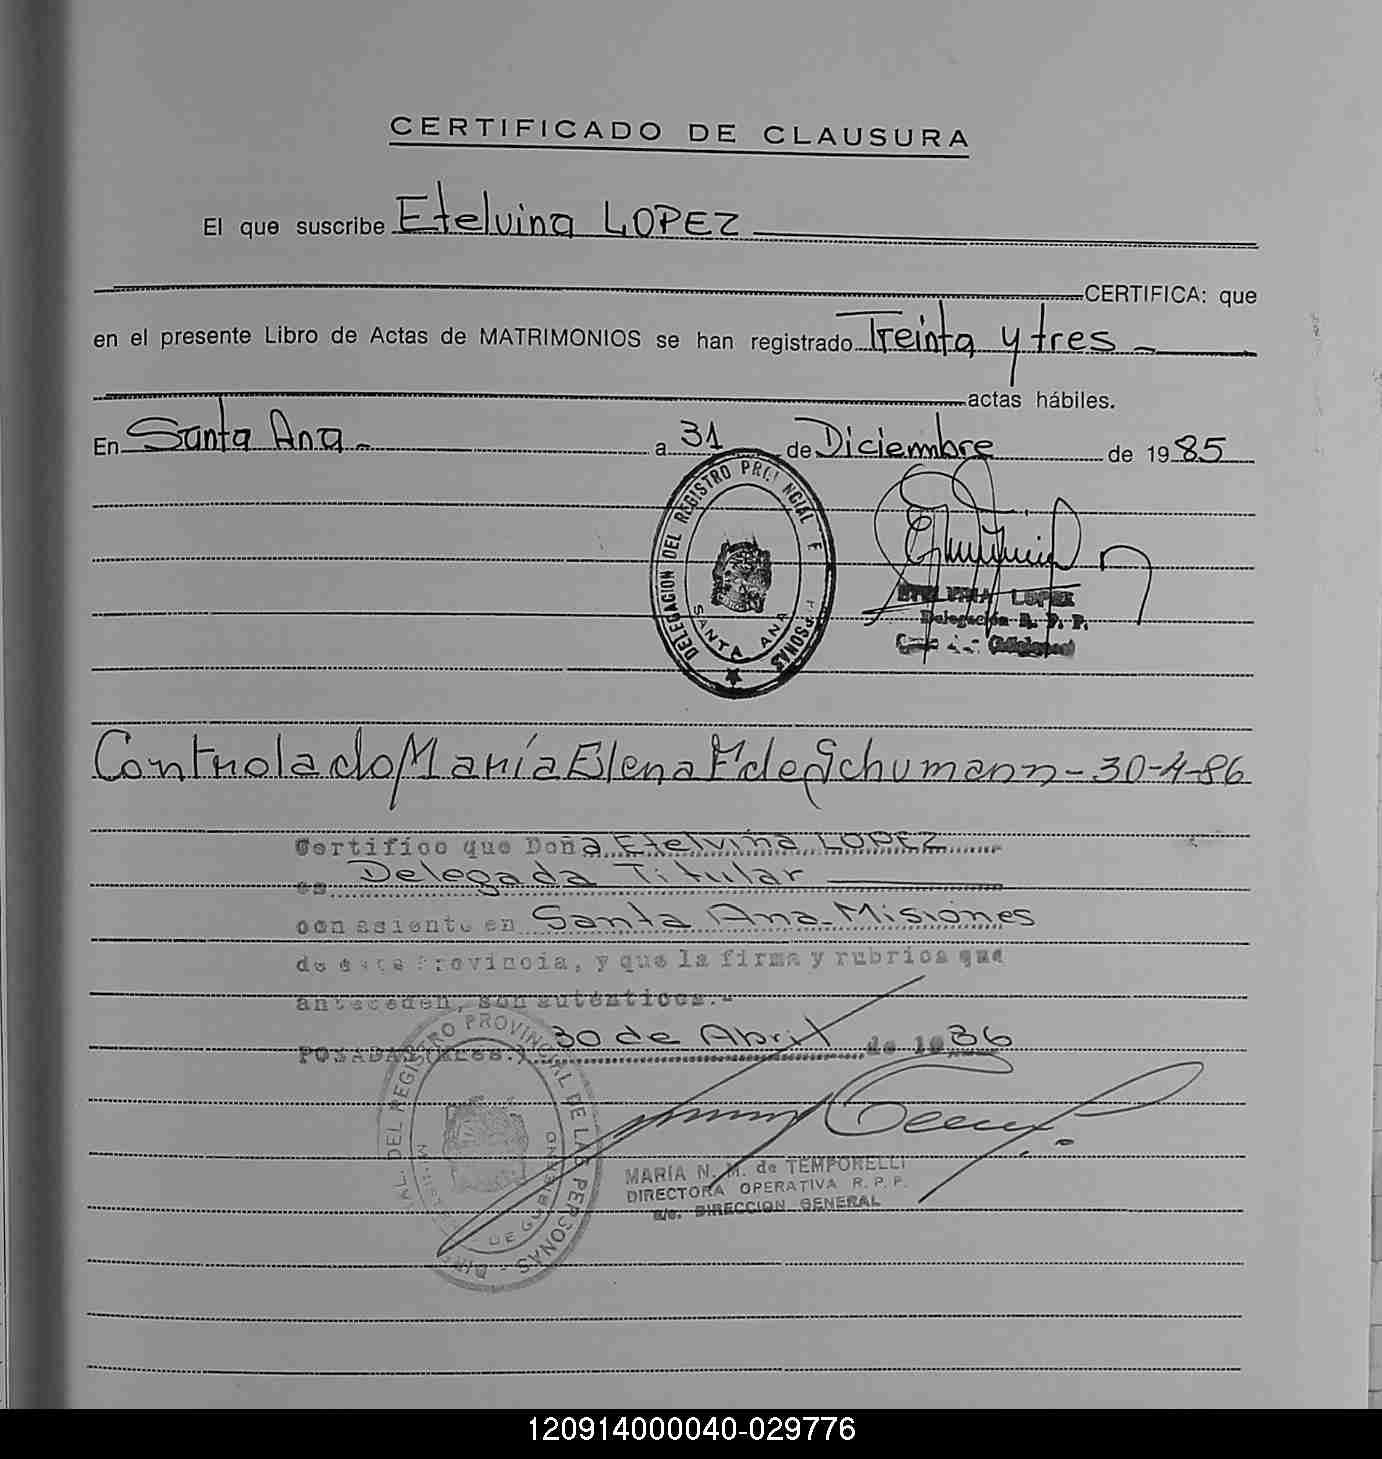 CERTIFICADO DE CLAUSURA
El que suscribe Etelvina LOPEZ
CERTIFICA: que
en el presente Libro de Actas de MATRIMONIOS se han registrado Treinta y tres -
actas hábiles.
En Santa Ana - a 31 de Diciembre de 1985
DELEGACION DEL REGISTRO PROVINCIAL DE PERSONAS
SANTA ANA
ETELVINA LOPEZ
Delegación R. P. P.
Controlado María Elena M de Schumann - 30-4-86
Certifico que Doña Etelvina LOPEZ
es Delegada Titular
con asiento en Santa Ana - Misiones
de esta Provincia, y que la firma y rubrica que
anteceden, son auténticos.-
POSADAS (Mnes.) 30 de Abril de 1986
DEL REGISTRO PROVINCIAL DE LAS PERSONAS
DE GOBIERNO
MARIA N. M. de TEMPORELLI
DIRECTORA OPERATIVA R. P. P.
a/c. DIRECCION GENERAL
120914000040-029776